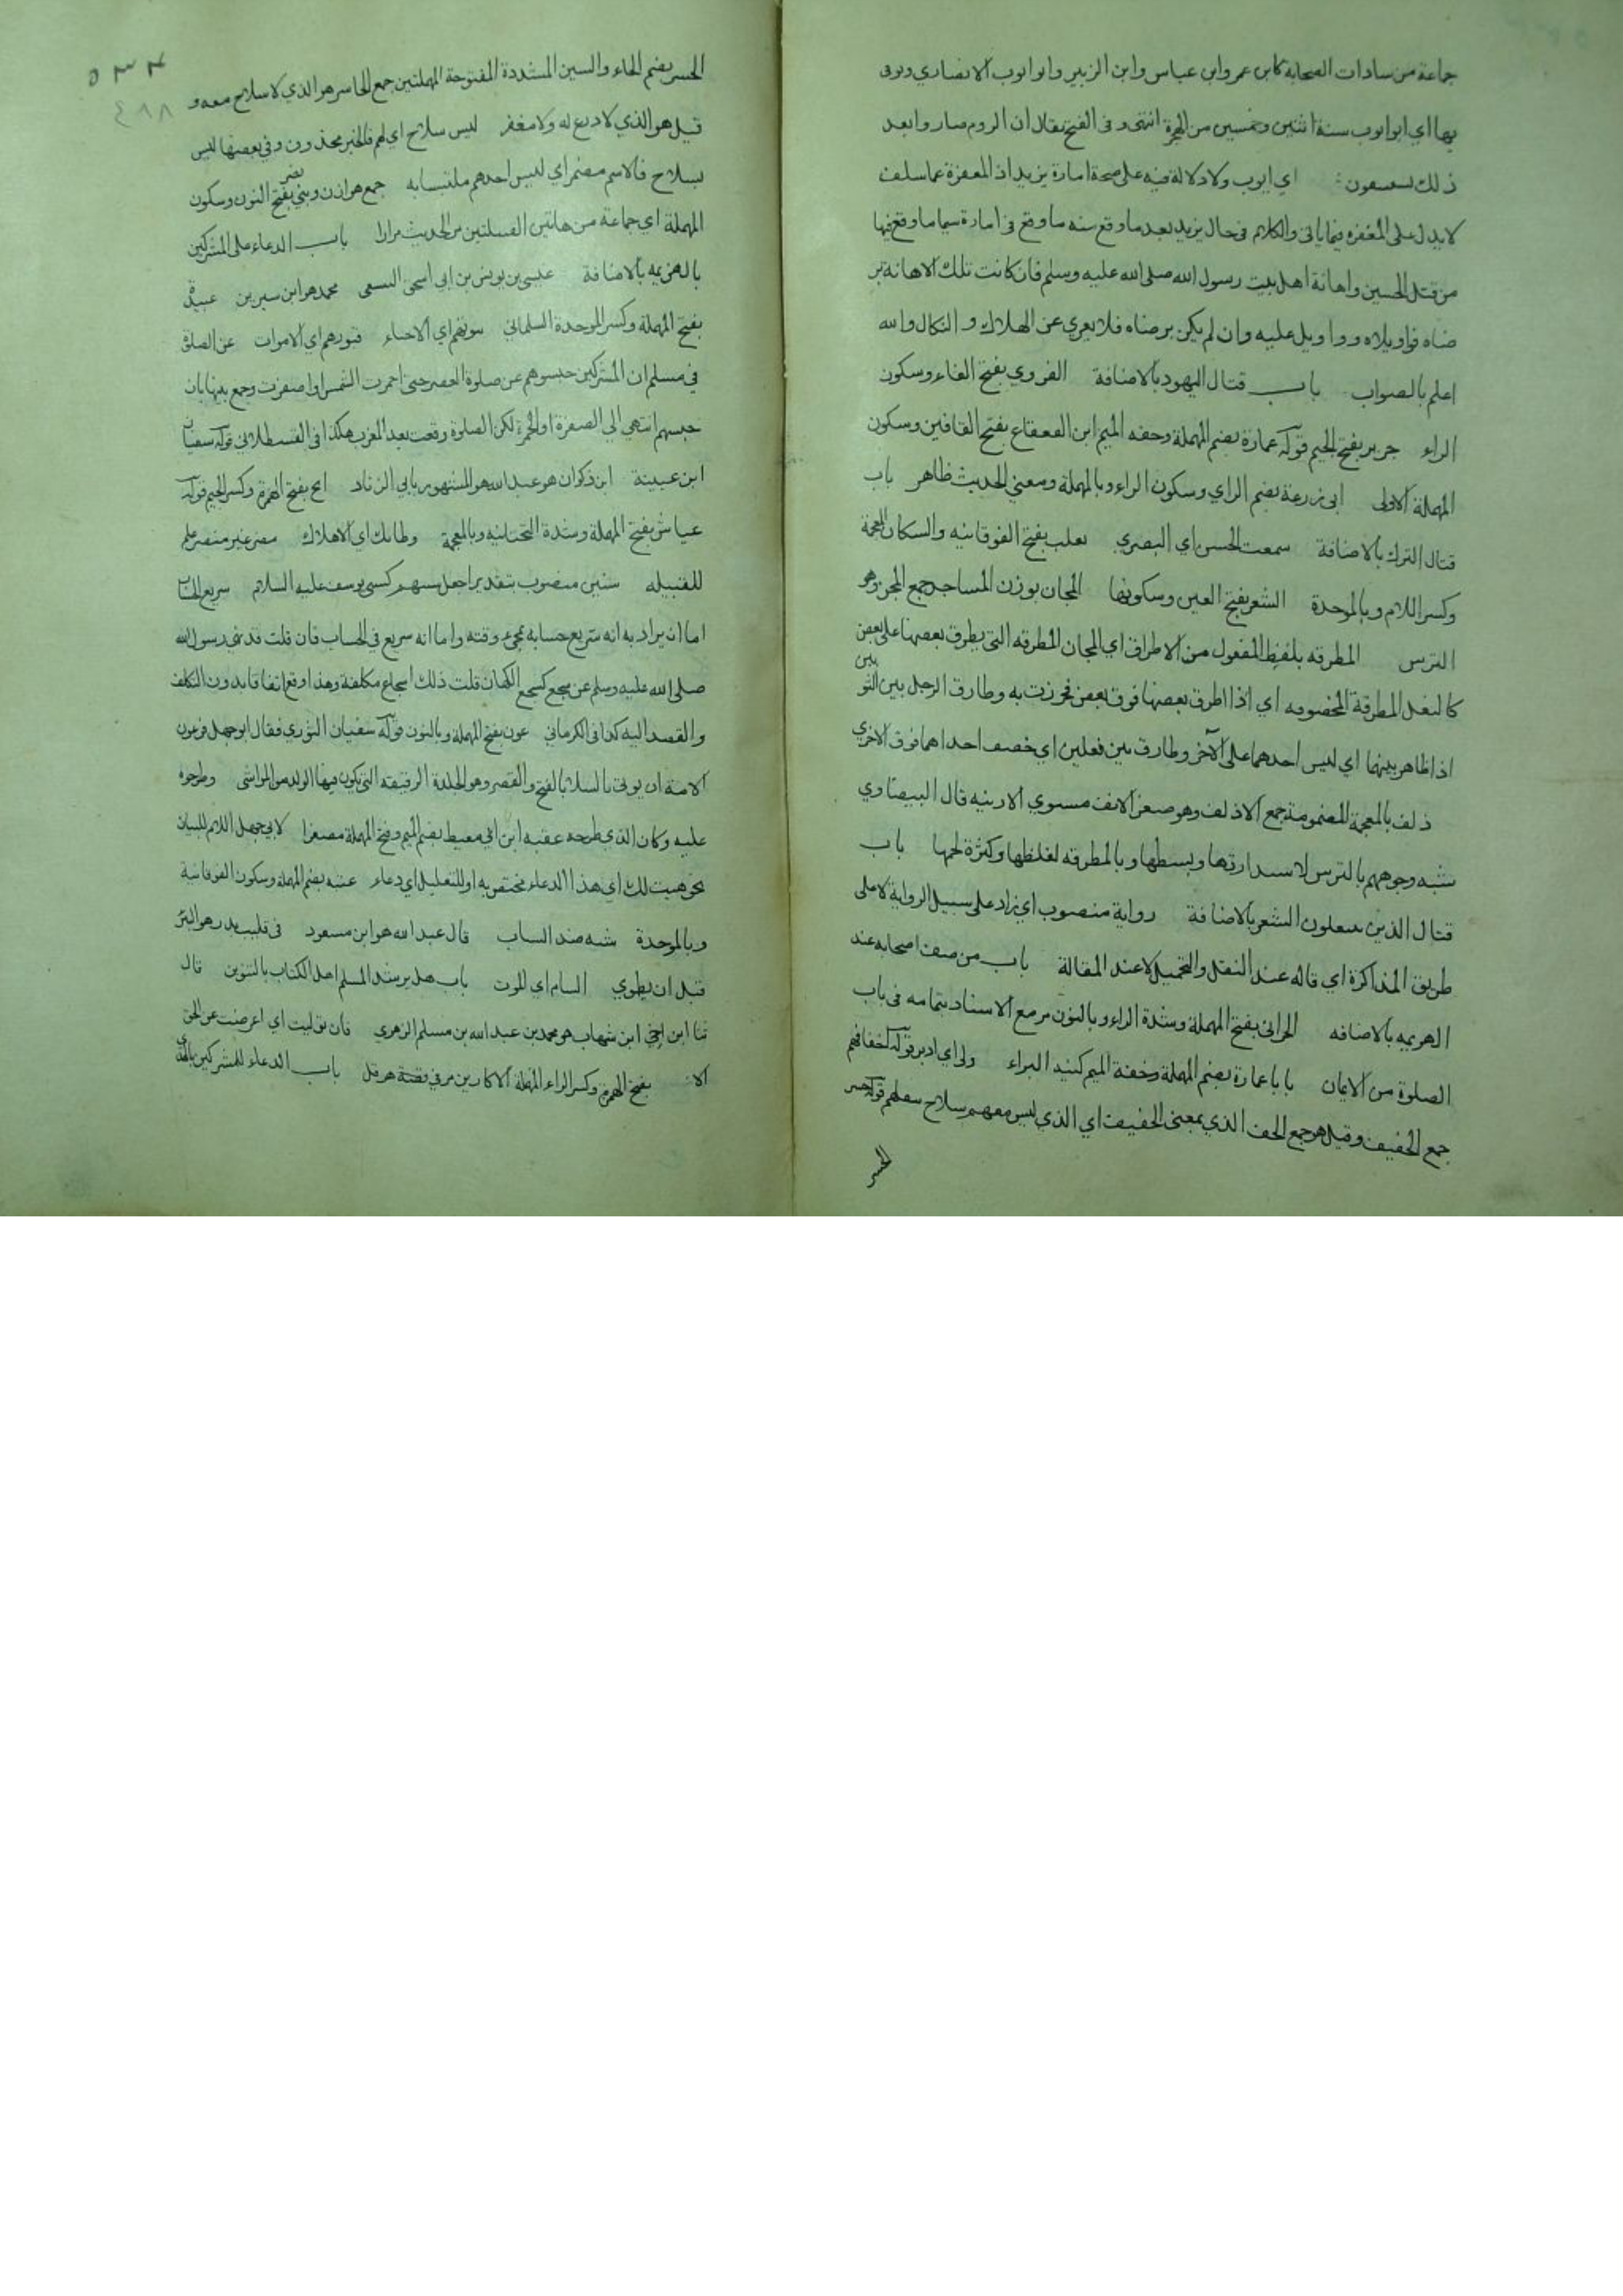 جماعة من سادات الصحابة كابن عمر وابن عباس وابن الزبير وابو ايوب الانصاري وتوفى
بها اي ابو ايوب سنة اثنتين وخمسين من الهجرة انتهى وفى الفتح يقال ان الروم صاروا بعد
ذلك يستسقون اي ايوب ولا دلالة فيه على صحة امارة يزيد اذ المغفرة عما سلف
لا يدل على المغفره فيما ياتى والكلام فى حال يزيد بعد ما وقع منه ما وقع فى امارة سيما ما وقع فيها
من قتل الحسين واهانة اهل بيت رسول الله صلى الله عليه وسلم فان كانت تلك الاهانة بر
ضاه فواويلاه وواويل عليه وان لم يكن برضاه فلا يعري عن الهلاك و النكال والله
اعلم بالصواب باب قتال اليهود بالاضافة الفروي بفتح الفاء وسكون
الراء جرير بفتح الجيم قوله عمارة بضم المهملة وخفه الميم ابن القعقاع بفتح القافين وسكون
المهملة الاولى ابى زرعة بضم الزاي وسكون الراء وبالمهملة ومعنى الحديث ظاهر باب
قتال الترك بالاضافة سمعت الحسن اي البصري تغلب بفتح الفوقانيه واسكان المعجمة
وكسر اللام وبالموحدة الشعر بفتح العين وسكونها المجان بوزن المساجد جمع المجن وهو
الترس المطرقه بلفظ المفعول من الاطراق اي المجان المطرقه التى يطرق بعضها على بعض
كالنعل المطرقة المخصوفه اي اذا اطرق بعضها فوق بعض خرزت به وطارق الرجل بين الثو
بين
اذا ظاهر بينهما اي لبس احدهما على الآخر وطارق بين نعلين اي خصف احداهما فوق الاخري
ذلف بالمعجمة المضمومة جمع الاذلف وهو صغر الانف مستوي الارنبه قال البيضاوي
شبه وجوههم بالترس لاستدارتها وبسطها وبالمطرقه لغلظها وكثرة لحمها باب
قتال الذين ينتعلون الشعر بالاضافة رواية منصوب اي زاد على سبيل الرواية لا على
طريق المذاكرة اي قاله عند النقل والتحميل لا عند المقالة باب من صف اصحابه عند
الهزيمه بالاضافه الحرانى بفتح المهملة وشدة الراء وبالنون مر مع الاسناد بتمامه فى باب
الصلوة من الايمان يا با عمارة بضم المهملة وخفة الميم كنية البراء ولى اي ادبر قوله اخفافهم
جمع الخفيف وقيل هو جمع الخف الذي بمعنى الخفيف اي الذي ليس معهم سلاح قوله حسر
الحسر
٥٣٤
٤٨٨
الحسر بضم الحاء والسين المشددة المفتوحة المهملتين جمع الحاسر هو الذي لا سلاح معه و
قيل هو الذي لا درع له ولا مغفر ليس سلاح اي لهم فالخبر محذوف وفي بعضها ليس
بسلاح فالاسم مضمر اي ليس احدهم ملتبسا به جمع هوازن وبني نصر بفتح النون وسكون
المهملة اي جماعة من هاتين القبيلتين مر الحديث مرارا باب الدعاء على المشركين
بالهزيمه بالاضافة عيسى بن يونس بن ابي اسحق السبيعى محمد هو ابن سيرين عبيدة
بفتح المهملة وكسر الموحدة السلمانى بيوتهم اي الاحياء قبورهم اي الاموات عن الصلوة
في مسلم ان المشركين حبسوهم عن صلوة العصر حتى احمرت الشمس او اصفرت وجمع بينها بان
حبسهم انتهى الى الصفرة او الحمرة لكن الصلوة وقعت بعد المغرب هكذا فى القسطلانى قوله سفيان
ابن عيينة ابن ذكوان هو عبد الله هو المشهور بابي الزناد انج بفتح الهمزة وكسر الجيم قوله
عياش بفتح المهملة وشدة التحتانيه وبالمعجمة وطاتك اي الاهلاك مضر غير منصرف علم
للقبيله سنين منصوب بتقدير اجعل سنيهم كسني يوسف عليه السلام سريع الحساب
اما ان يراد به انه سريع حسابه بمجئ وقته واما انه سريع في الحساب فان قلت قد نهى رسول الله
صلى الله عليه وسلم عن سجع كسجع الكهان قلت ذلك اسجاع مكلفة وهذا وقع اتفاقا بدون التكلف
والقصد اليه كذا فى الكرمانى عون بفتح المهملة وبالنون قوله سفيان الثوري فقال ابو جهل فرعون
الامة ان يوتى بالسلا بالفتح والقصر وهو الجلدة الرقيقه التى يكون فيها الولد من المواشى وطرحوه
عليه وكان الذي طرحه عقبه ابن ابي معيط بضم الميم وفتح المهملة مصغرا لابي جهل اللام للبيان
نحو هيت لك اي هذا الدعاء مختص به او للتعليل اي دعاء عتبه بضم المهملة وسكون الفوقانية
وبالموحدة شيبه ضد الشاب قال عبد الله هو ابن مسعود فى قليب بدر هو البئر
قبل ان يطوي السام اي الموت باب هل يرشد المسلم اهل الكتاب بالتنوين قال
ثنا ابن اخي ابن شهاب هو محمد بن عبد الله بن مسلم الزهري فان توليت اي اعرضت عن الحق
بفتح الهمزة وكسر الراء المهملة الاكارين مر في قصة هرقل باب الدعاء للمشركين بالهدى